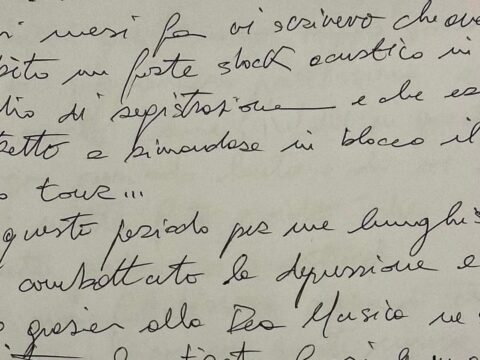 i mesi fa vi scrivevo che ave
bito un forte shock acustico in
dio di registrazione e che es
retto a rimandare in blocco il
o tour...
questo periodo per me lunghis
combattuto la depressione e
grazie alla Dea Musica ne